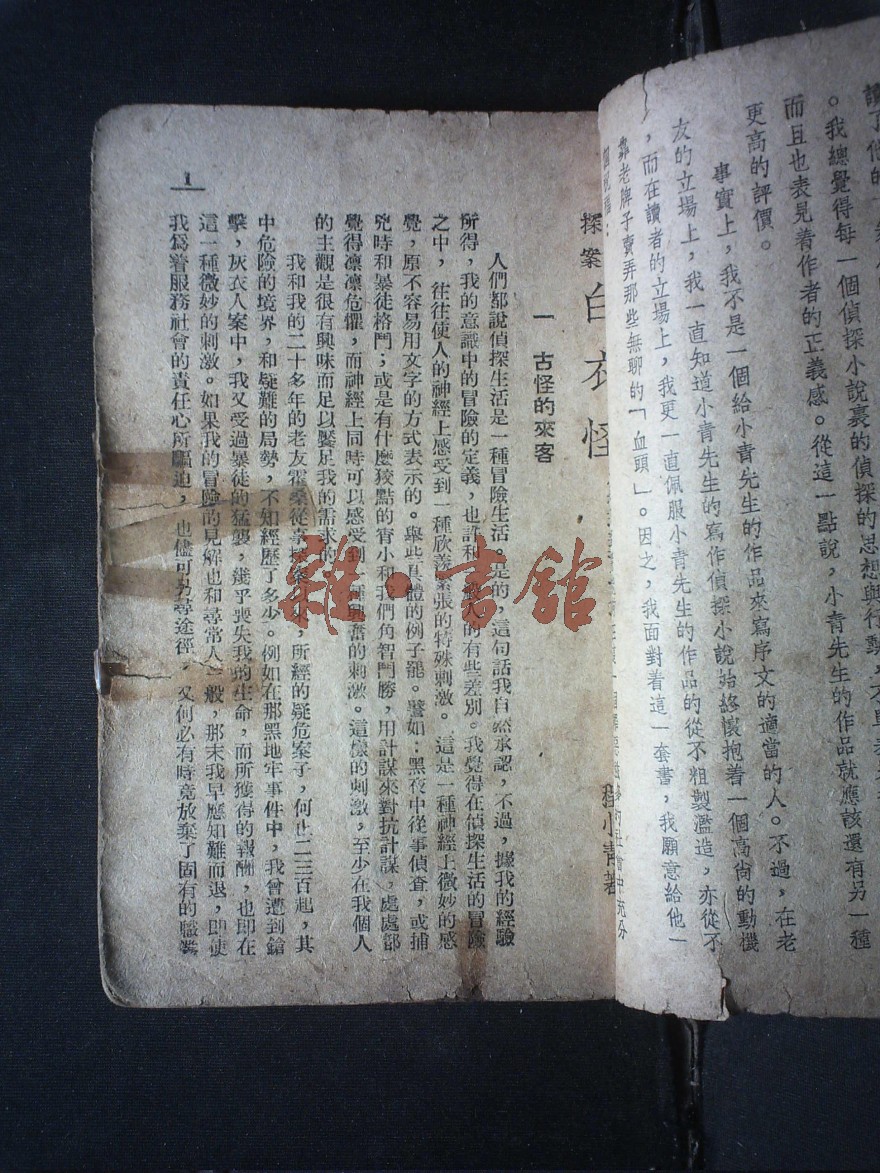 讀了他的
。我總覺得每一個偵探小說裏的偵探的思想與行動,不
而且也表見着作者的正義感。從這一點說,小青先生的作品就應該還有另一種
更高的評價。
事實上,我不是一個給小青先生的作品來寫序文的適當的人。不過,在老
友的立場上,我一直知道小青先生的寫作偵探小說始終懷抱着一個高尚的動機
,而在讀者的立場上,我更一直佩服小青先生的作品的從不粗製濫造,亦從不
靠老牌子賣弄那些無聊的「血頭」。因之,我面對着這一套書,我願意給他一
個祝福:
的社會中充分
探案 白衣怪
程小青著
一 古怪的來客
人們都說偵探生活是一種冒險生活。是的,這句話我自然承認,不過,據我的經驗
所得,我的意識中的冒險的定義,也許和一般人的有些差別。我覺得在偵探生活的冒險
之中,往往使人的神經上感受到一種欣羨緊張的特殊刺激。這是一種神經上微妙的感
覺,原不容易用文字的方式表示的。舉些具體的例子罷。譬如:黑夜中從事偵查,或捕
兇時和暴徒格鬥;或是有什麼狡黠的宵小和我們角智鬥勝,用計謀來對抗計謀,處處都
覺得凛凛危懼,而神經上同時可以感受到一種興奮的刺激。這樣的刺激,至少在我個人
的主觀是很有興味而足以饜足我的需求的。
我和我的二十多年的老友霍桑從事探案以來,所經的疑危案子,何止二三百起,其
中危險的境界,和疑難的局勢,不知經歷了多少。例如在那黑地牢事件中,我曾遭到鎗
擊,灰衣人案中,我又受過暴徒的猛襲,幾乎喪失我的生命,而所獲得的報酬,也即在
這一種微妙的刺激。如果我的冒險的見解也和尋常人一般,那末我早應知難而退,即使
我爲着服務社會的責任心所驅迫,也儘可另尋途徑,又何必有時竟放棄了固有的職業
1
雜·書館